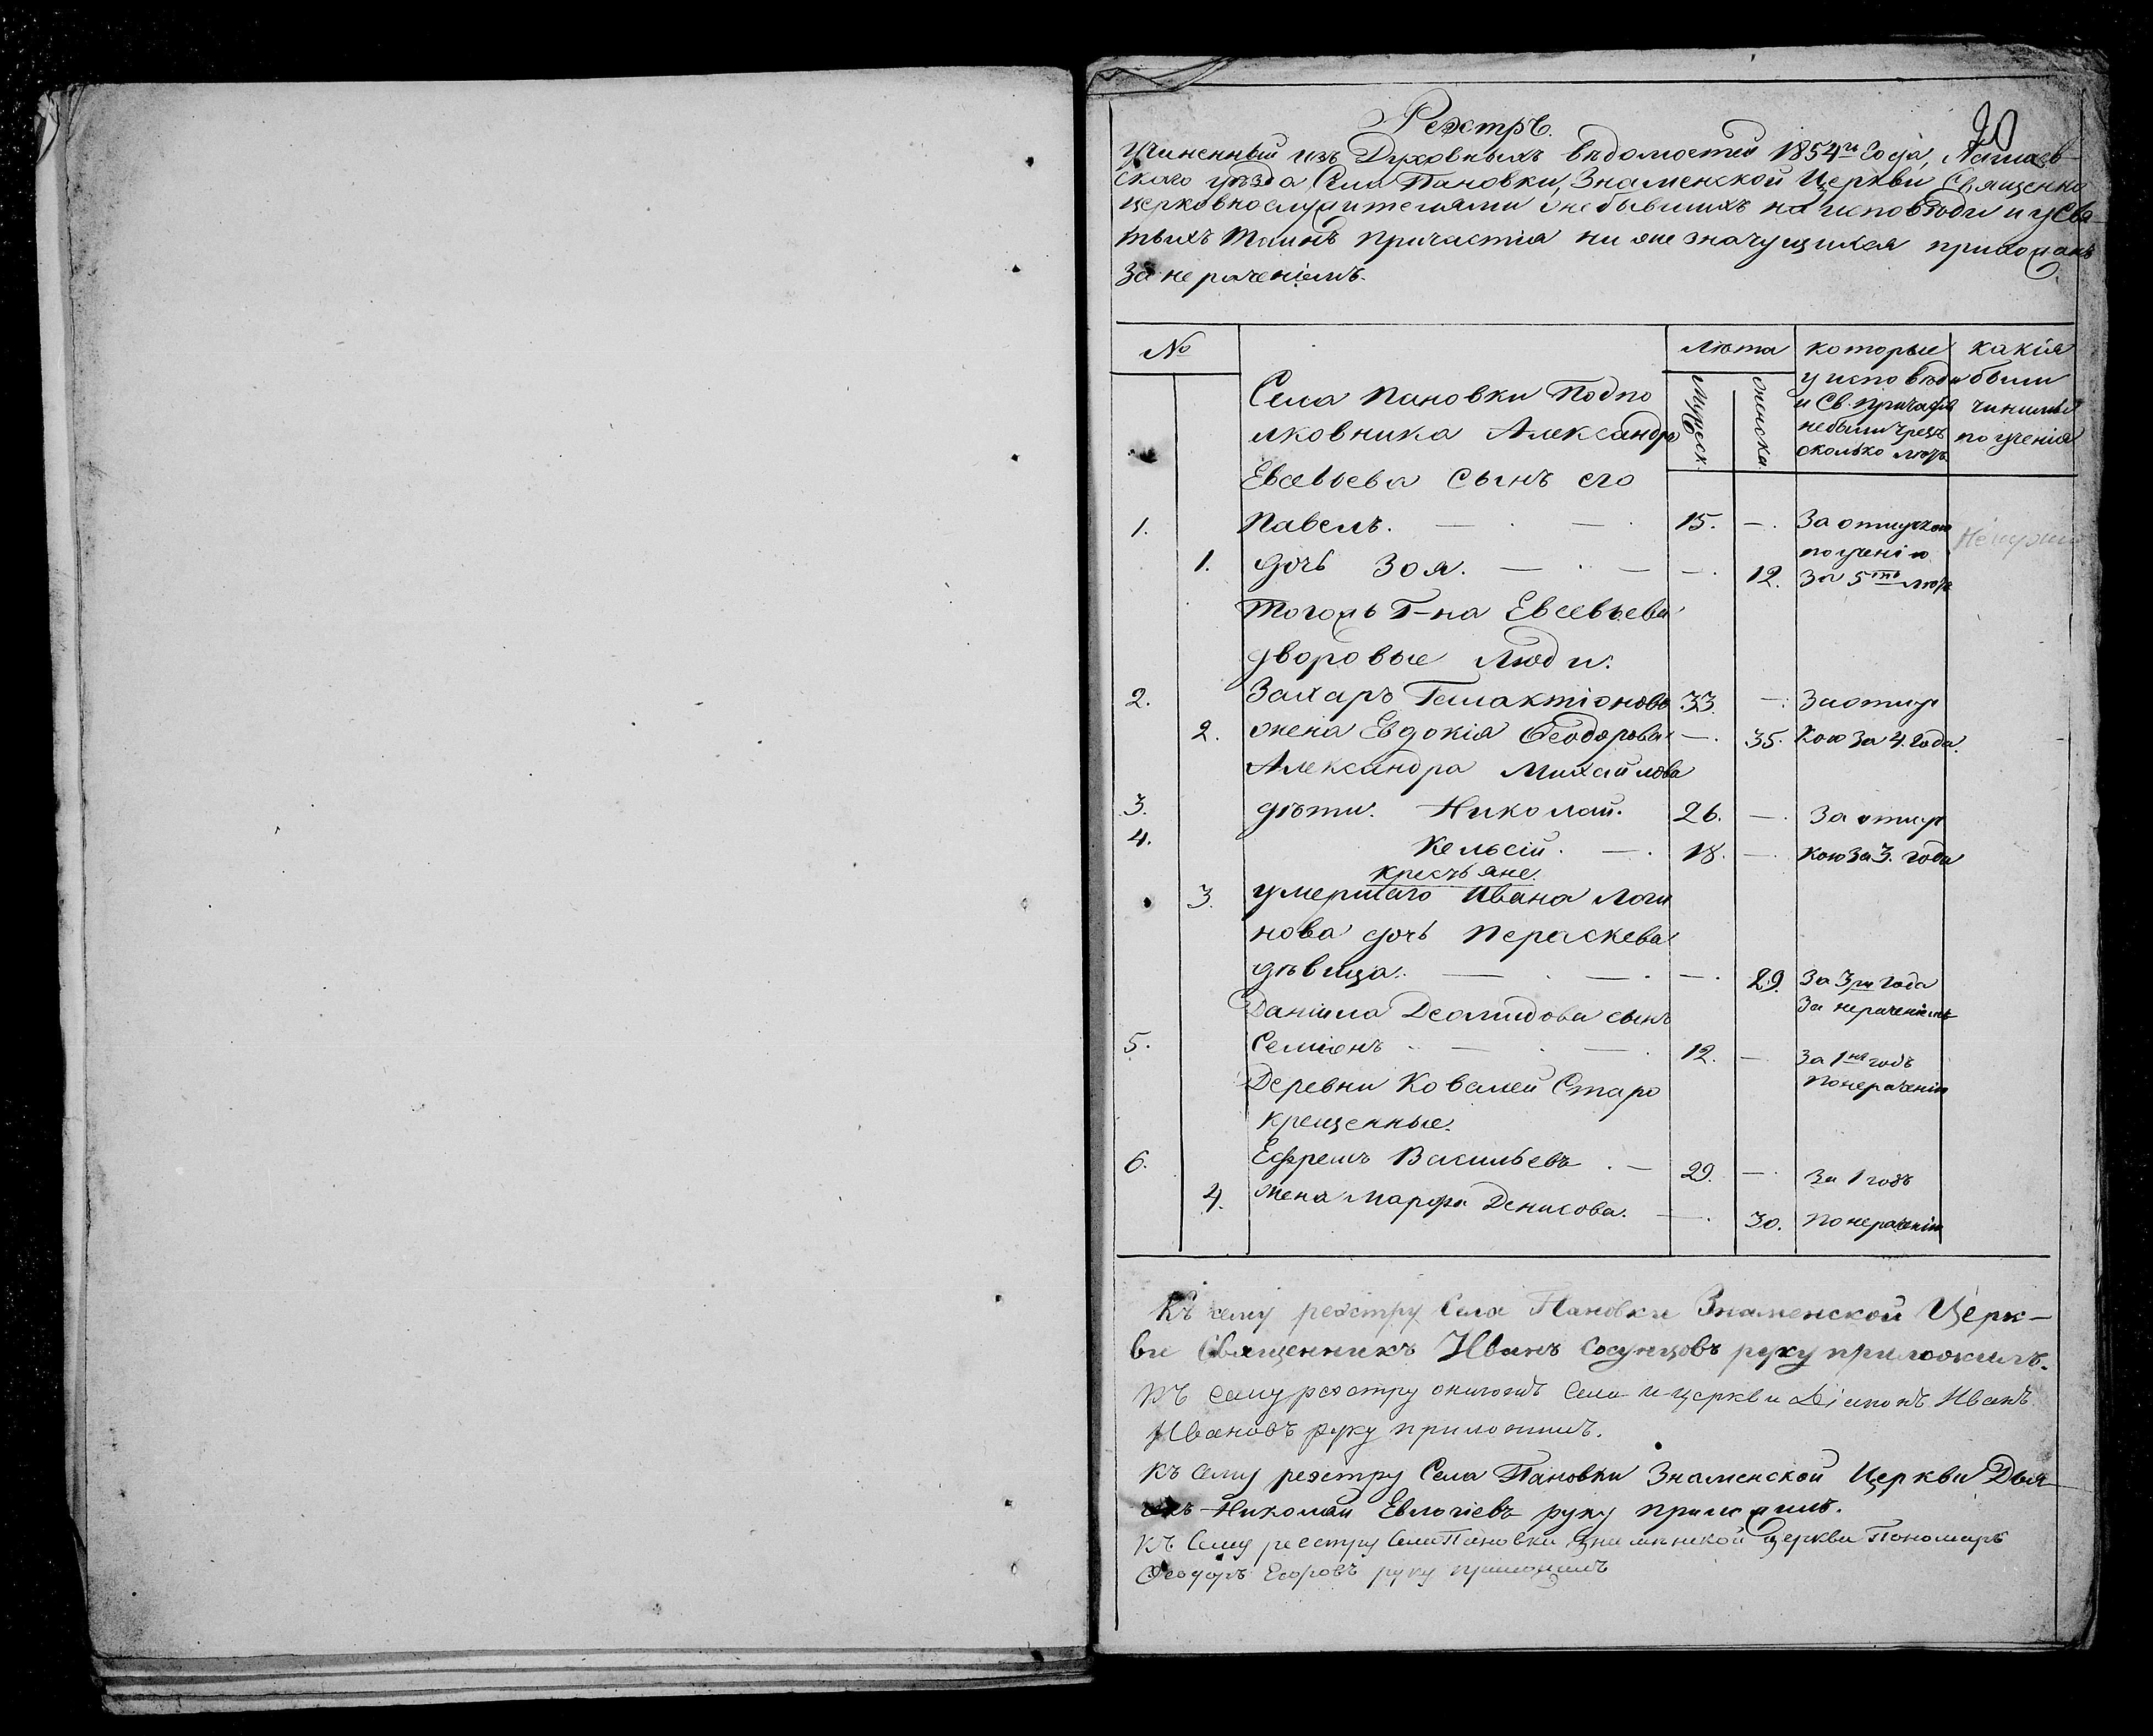 20
Реэстръ.
Учиненный изъ Духовныхъ вѣдомостей 1854го Года, Лаишев-
скаго уѣзда Села Пановки, Знаменской Церкви Священно
церковнослужителями онебывшихъ на исповѣди и у Свя-
тыхъ Таинъ причастія ни же значущихся прихожанъ
за не раченіемъ.
№ Лѣта которые какія
Мужеск. Женска. у исповѣди были
и Св. причастія чинимы
небыли чрезъ поученія
сколько лѣтъ
Села Пановки Подпо
лковника Александра
Евсевьева сынъ его
1. Павелъ. — . — . 15. — . За отлучкою
по ученію
1. дочь Зоя. — . — — . 12. За 5ть лѣтъ
Тогожъ Г-на Евсевьева
дворовые люди.
2. Захаръ Галактіоновъ 33. — . За отлуч
2. жена Евдокія Ѳеодорова — . 35. кою за 4. года.
Александра Михайлова
3. дѣти. Николай. 26. — . За отлуч
4. Кельсій. — . 18. — . кою за 3. года
кресть яне.
3. умершаго Ивана Логи
нова дочь Пераскева
дѣвица. — . — . — . 29. За 3ри года
За нераченіемъ
Даніила Деомидова сынъ
5. Семіонъ . — . — . 12. — За 1нъ годъ
По нераченію
Деревни Ковалей Старо
крещенные.
6. Ефремъ Васильевъ . — 29. — . За 1 годъ
4. жена Марфа Денисова. — . 30. По нераченію
Къ сему реэстру Села Пановки Знаменской Церк-
ви Священникъ Иванъ Сосунцовъ руку приложилъ.
Къ сему реэстру Села и церкви Діаконъ Иванъ
Ивановъ руку приложилъ.
Къ сему реэстру Села Пановки Знаменской Церкви Дья-
чекъ Николай Евлогіевъ руку приложилъ.
Къ Сему реестру Села Пановки Знаменской Церкви Пономарь
Ѳеодоръ Егоровъ руку приложилъ